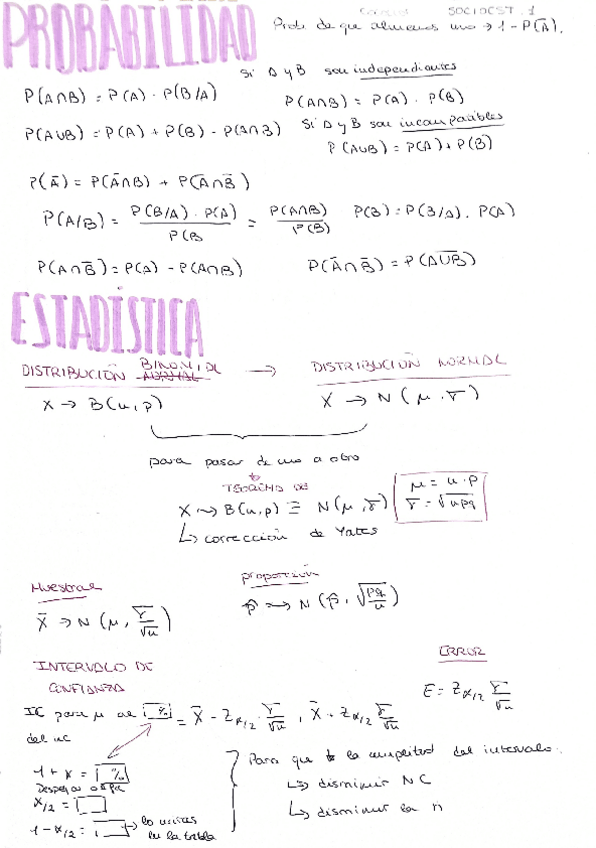 SOCIOCST. 1
PROBABILIDAD
Prob. de que almenos uno → 1 - P(Ā).
Si A y B son independientes
P(A∩B) = P(A) · P(B/A)
P(A∩B) = P(A) · P(B)
P(A∪B) = P(A) + P(B) - P(A∩B)
Si A y B son incompatibles
P(A∪B) = P(A) + P(B)
P(Ā) = P(Ā∩B) + P(Ā∩B̄)
P(A/B) = P(B/A) · P(A) / P(B = P(A∩B) / P(B)
P(B) = P(B/A) · P(A)
P(A∩B̄) = P(A) - P(A∩B)
P(Ā∩B̄) = P(A∪B)‾
ESTADÍSTICA
DISTRIBUCIÓN BINOMIAL NORMAL → DISTRIBUCIÓN NORMAL
X → B(n, p)
X → N(μ, σ)
para pasar de uno a otro
TEOREMA DE
X → B(n, p) ≡ N(μ, σ)
μ = n · p
σ = √npq
↳ corrección de Yates
Muestral
proporción
X̄ → N(μ, σ/√n)
p̂ → N(p̂, √pq/n)
INTERVALO DE CONFIANZA
ERROR
E = Zα/2 σ/√n
IC para μ al % = X̄ - Zα/2 · σ/√n , X̄ + Zα/2 σ/√n
del NC
1 + α = %
Despejas alfa
α/2 =
1 - α/2 = → lo miras en la tabla
Para que la amplitud del intervalo.
↳ disminuir NC
↳ disminuir la n